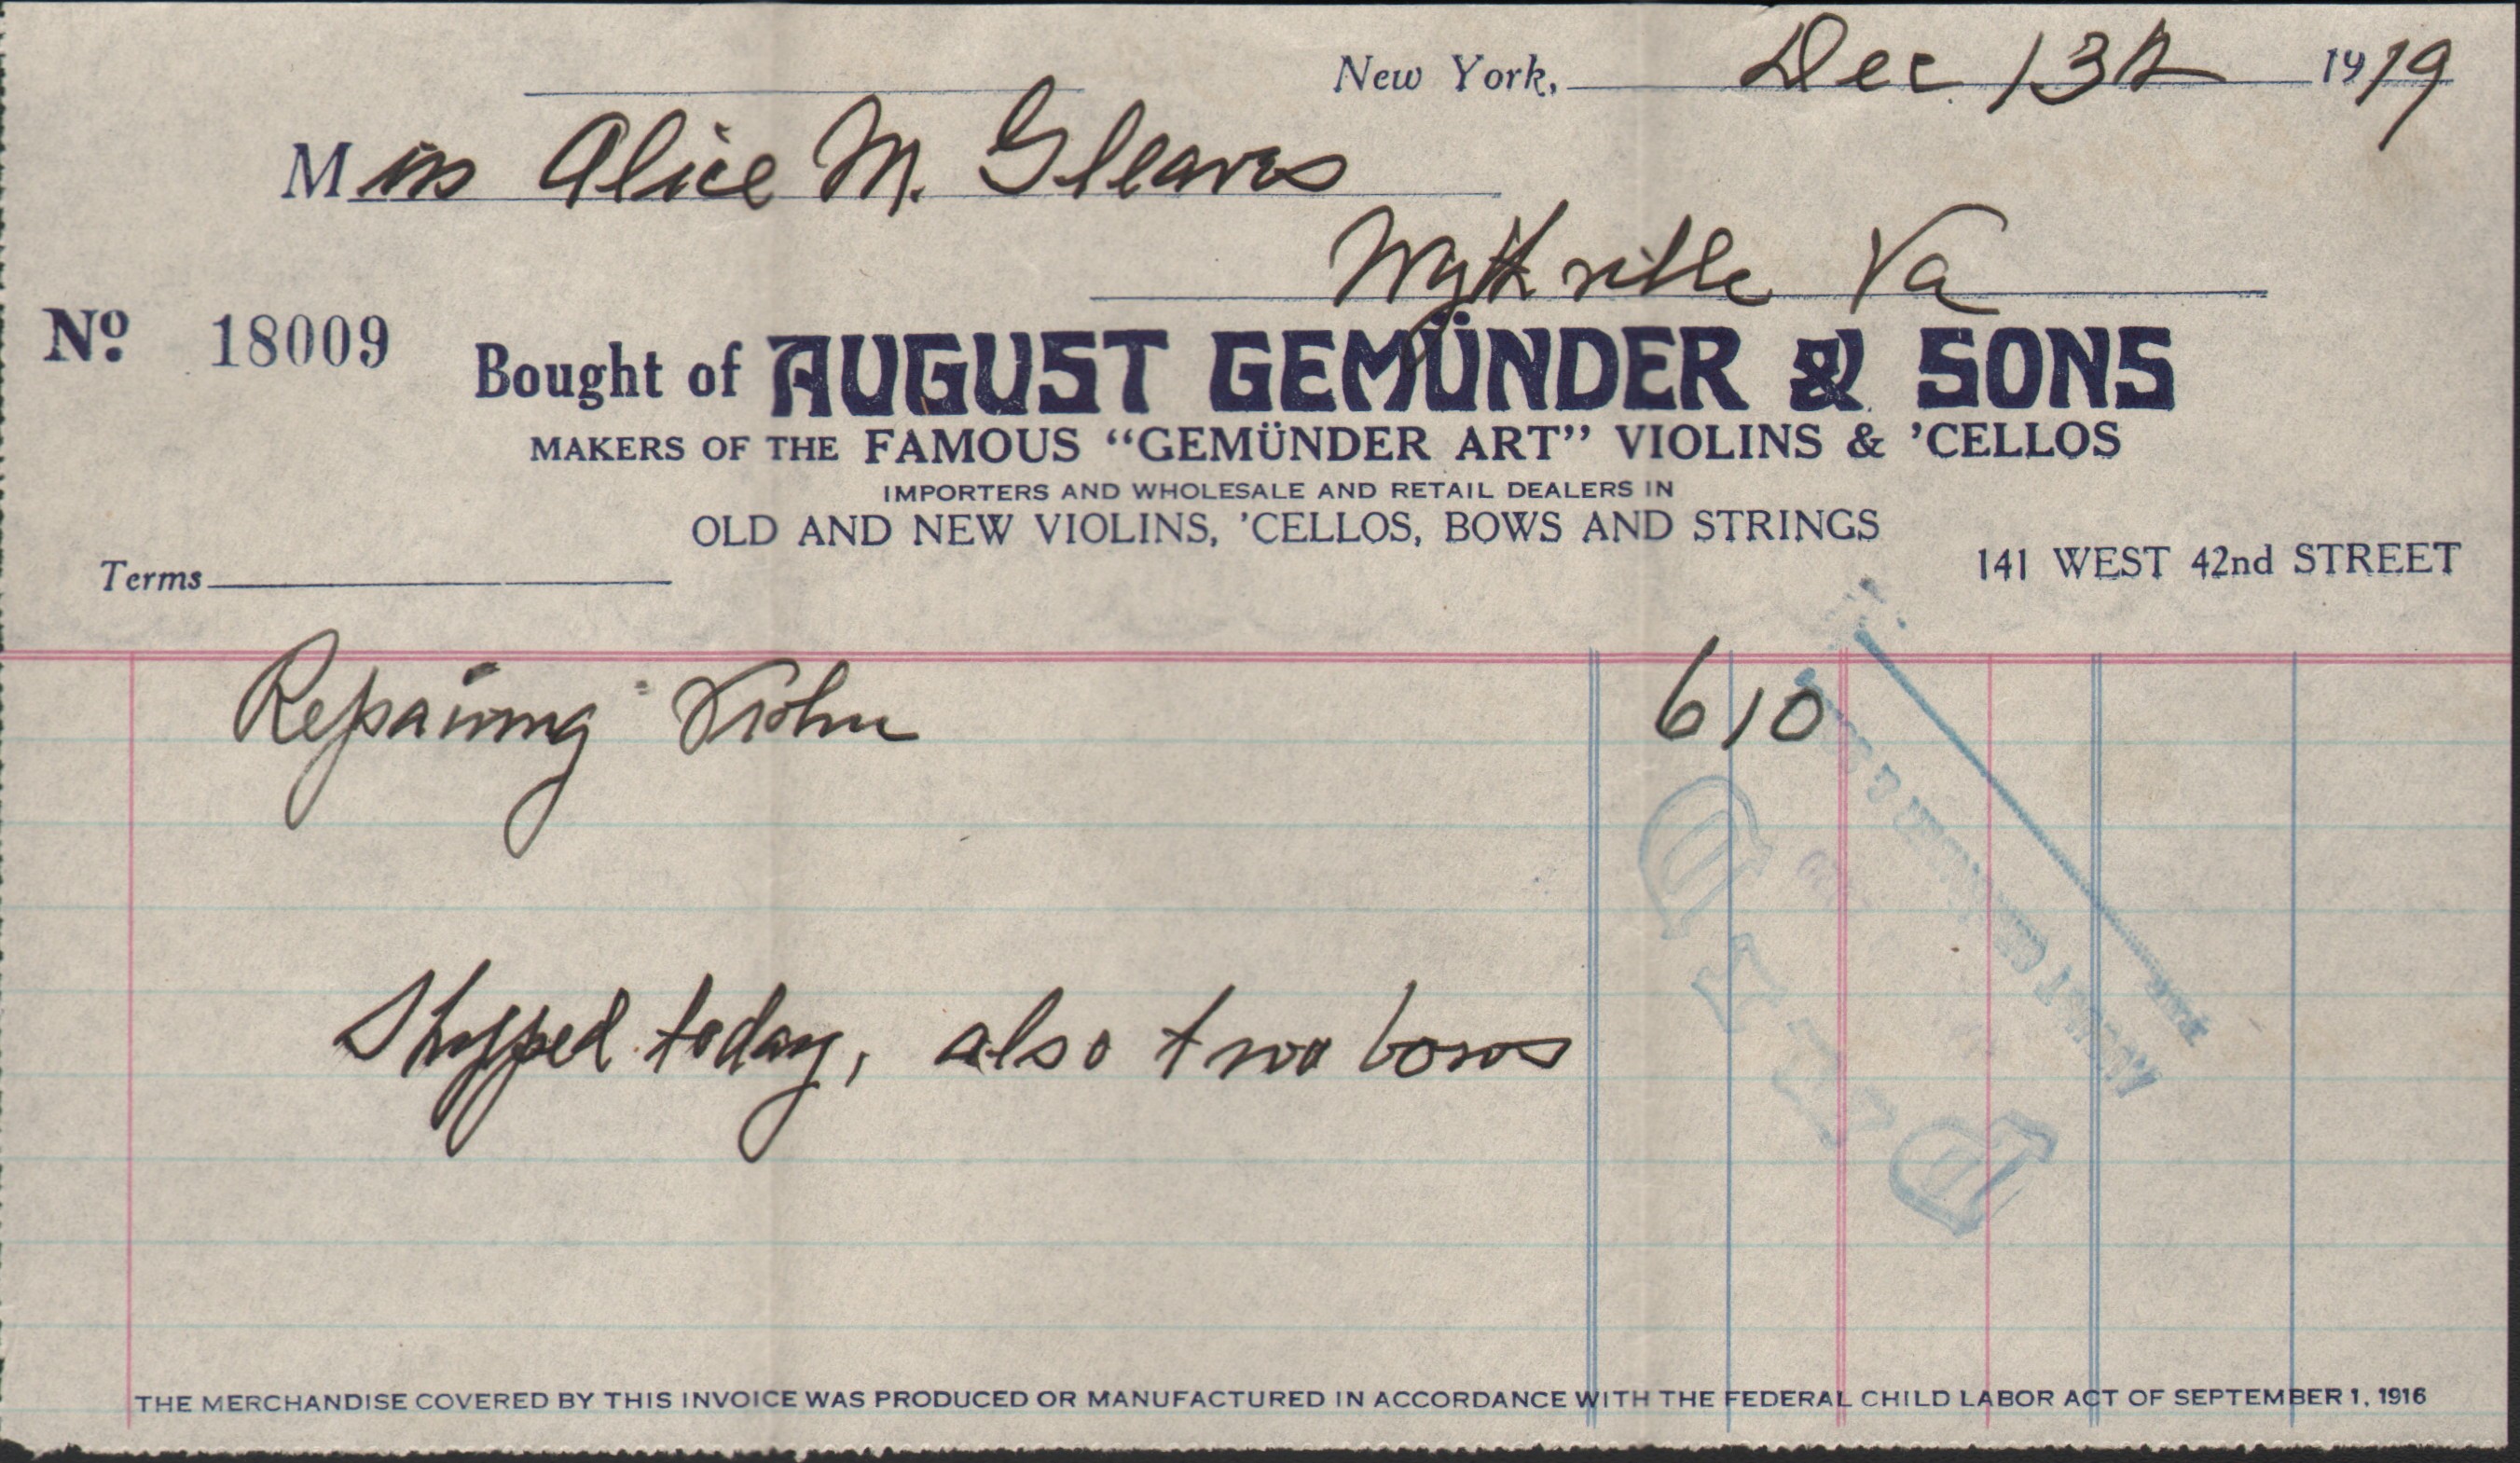 New York, Dec 13th 1919
Miss Alice M. Gleaves
Wytheville Va
No. 18009
Bought of AUGUST GEMÜNDER & SONS
MAKERS OF THE FAMOUS “GEMÜNDER ART” VIOLINS & ’CELLOS
IMPORTERS AND WHOLESALE AND RETAIL DEALERS IN
OLD AND NEW VIOLINS, ’CELLOS, BOWS AND STRINGS
141 WEST 42nd STREET
Terms
Repairing Violin 6 10
Shipped today, also two bows
PAID
THE MERCHANDISE COVERED BY THIS INVOICE WAS PRODUCED OR MANUFACTURED IN ACCORDANCE WITH THE FEDERAL CHILD LABOR ACT OF SEPTEMBER 1, 1916